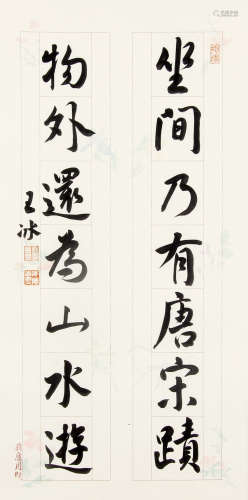 坐間乃有唐宋蹟
物外還為山水遊
王冰